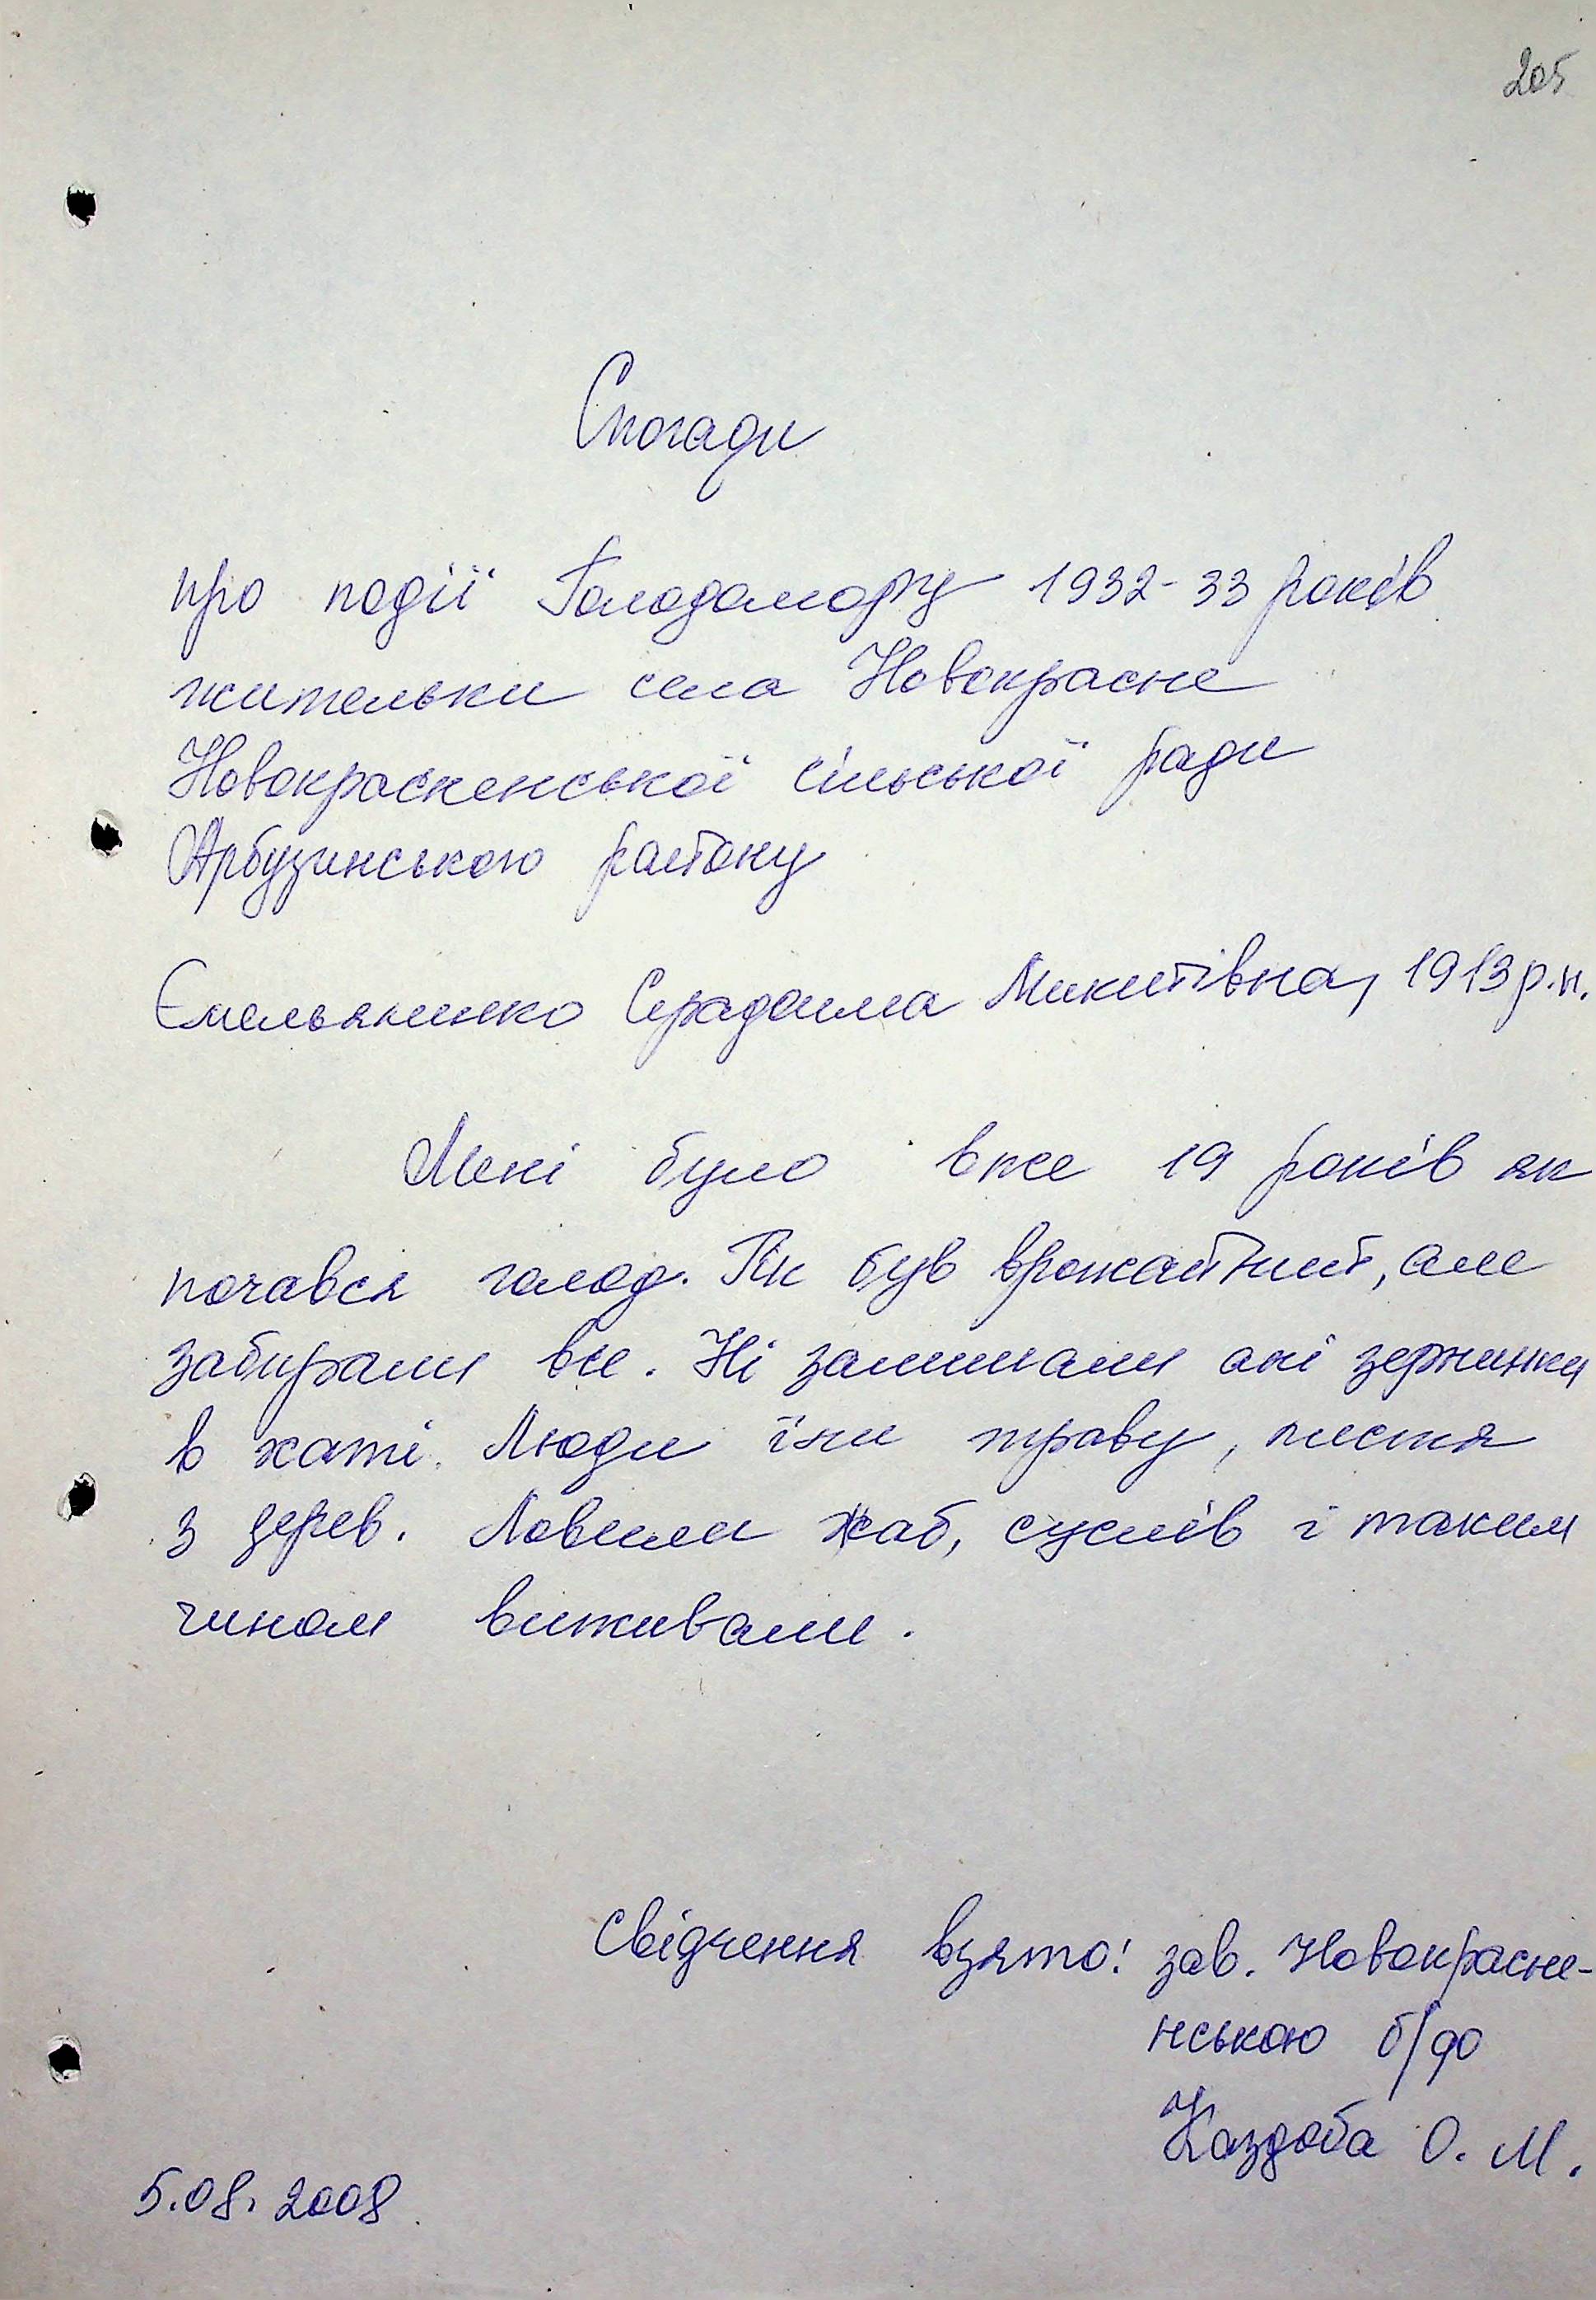 205
Спогади
про події Голодомору 1932-33 років
жительки села Новокрасне
Новокрасненської сільської ради
Арбузинського району
Ємельяненко Серадаима Микитівна, 1913 р.н.
Мені було вже 19 років як
почався голод. Рік був врожайний, але
забирали все. Ні залишали ані зернинки
в хаті. Люди їли траву, листя
з дерев. Ловили жаб, суслів і таким
чином виживали.
Свідчення взято: зав. Новокрасне-
нською б/ф
Каздоба О. М.
5.08.2008